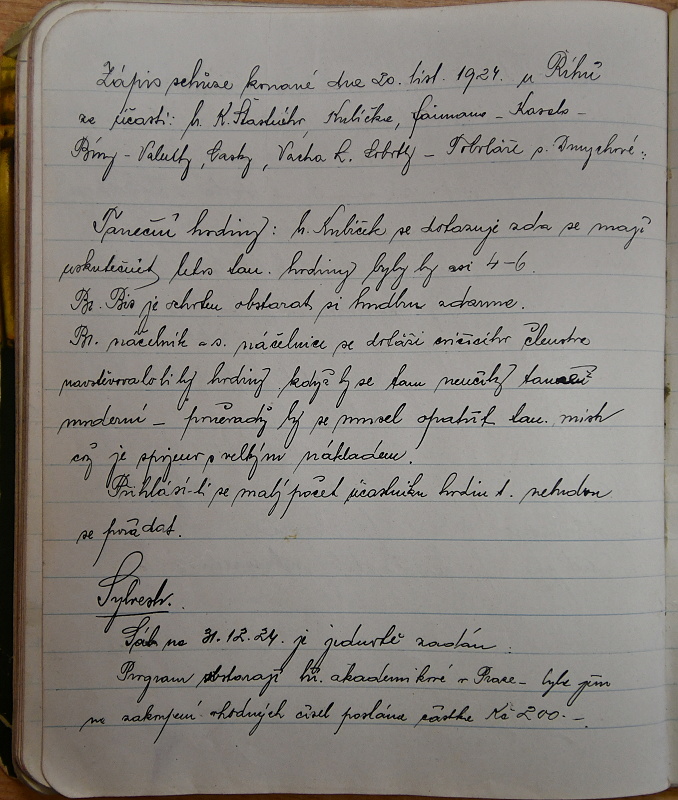 Zápis schůze konané dne 20. list. 1924. u Říhů
za účasti: br. K. Šťastného Kubíčka, Fáimana – Havels –
Bíny – Valenty, Časky, Vácha L. – s. Dmychové:
Taneční hodiny: br. Kubíček se dotazuje zda se mají
uskutečnit letos tan. hodiny byly by asi 4–6.
Br. Bis je ochoten obstarat si hudbu zdarma.
Br. náčelník a s. náčelnice se dotáží cvičícího členstva
navštěvovalo-li by hodiny když by se tam neučily taneč
moderní – poněvadž by se musel opatřit tan. mistr
což je spojeno s velkým nákladem.
Přihlásí-li se malý počet účastníků hodin t. nebudou
se pořádat.
Sylvestr.
Sál na 31.12.24. je jednotě zadán.
Program obstarají br. akademikové v Praze – bylo jim
na zakoupení vhodných čísel poslána částka Kč 200.–